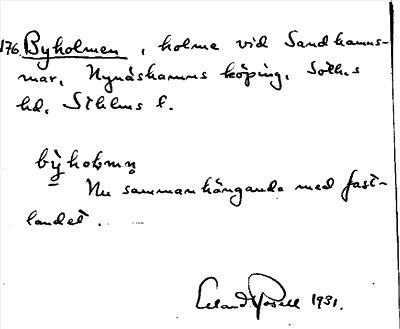 176. Byholmen, holme vid Sandhamns-
mar, Nynäshamns köping, Soth:s
hd, Sthlms l.
bỳholmn̥
Nu sammanhängande med fast-
landet.
Erland Rosell 1931.